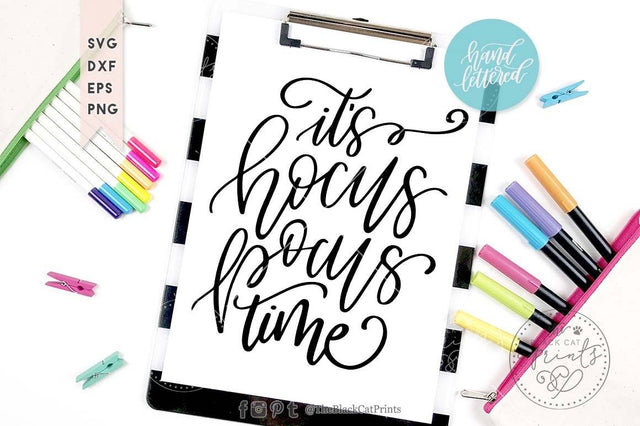 SVG
DXF
EPS
PNG
hand
lettered
it's
hocus
pocus
time
THE
BLACK CAT
prints
@TheBlackCatPrints